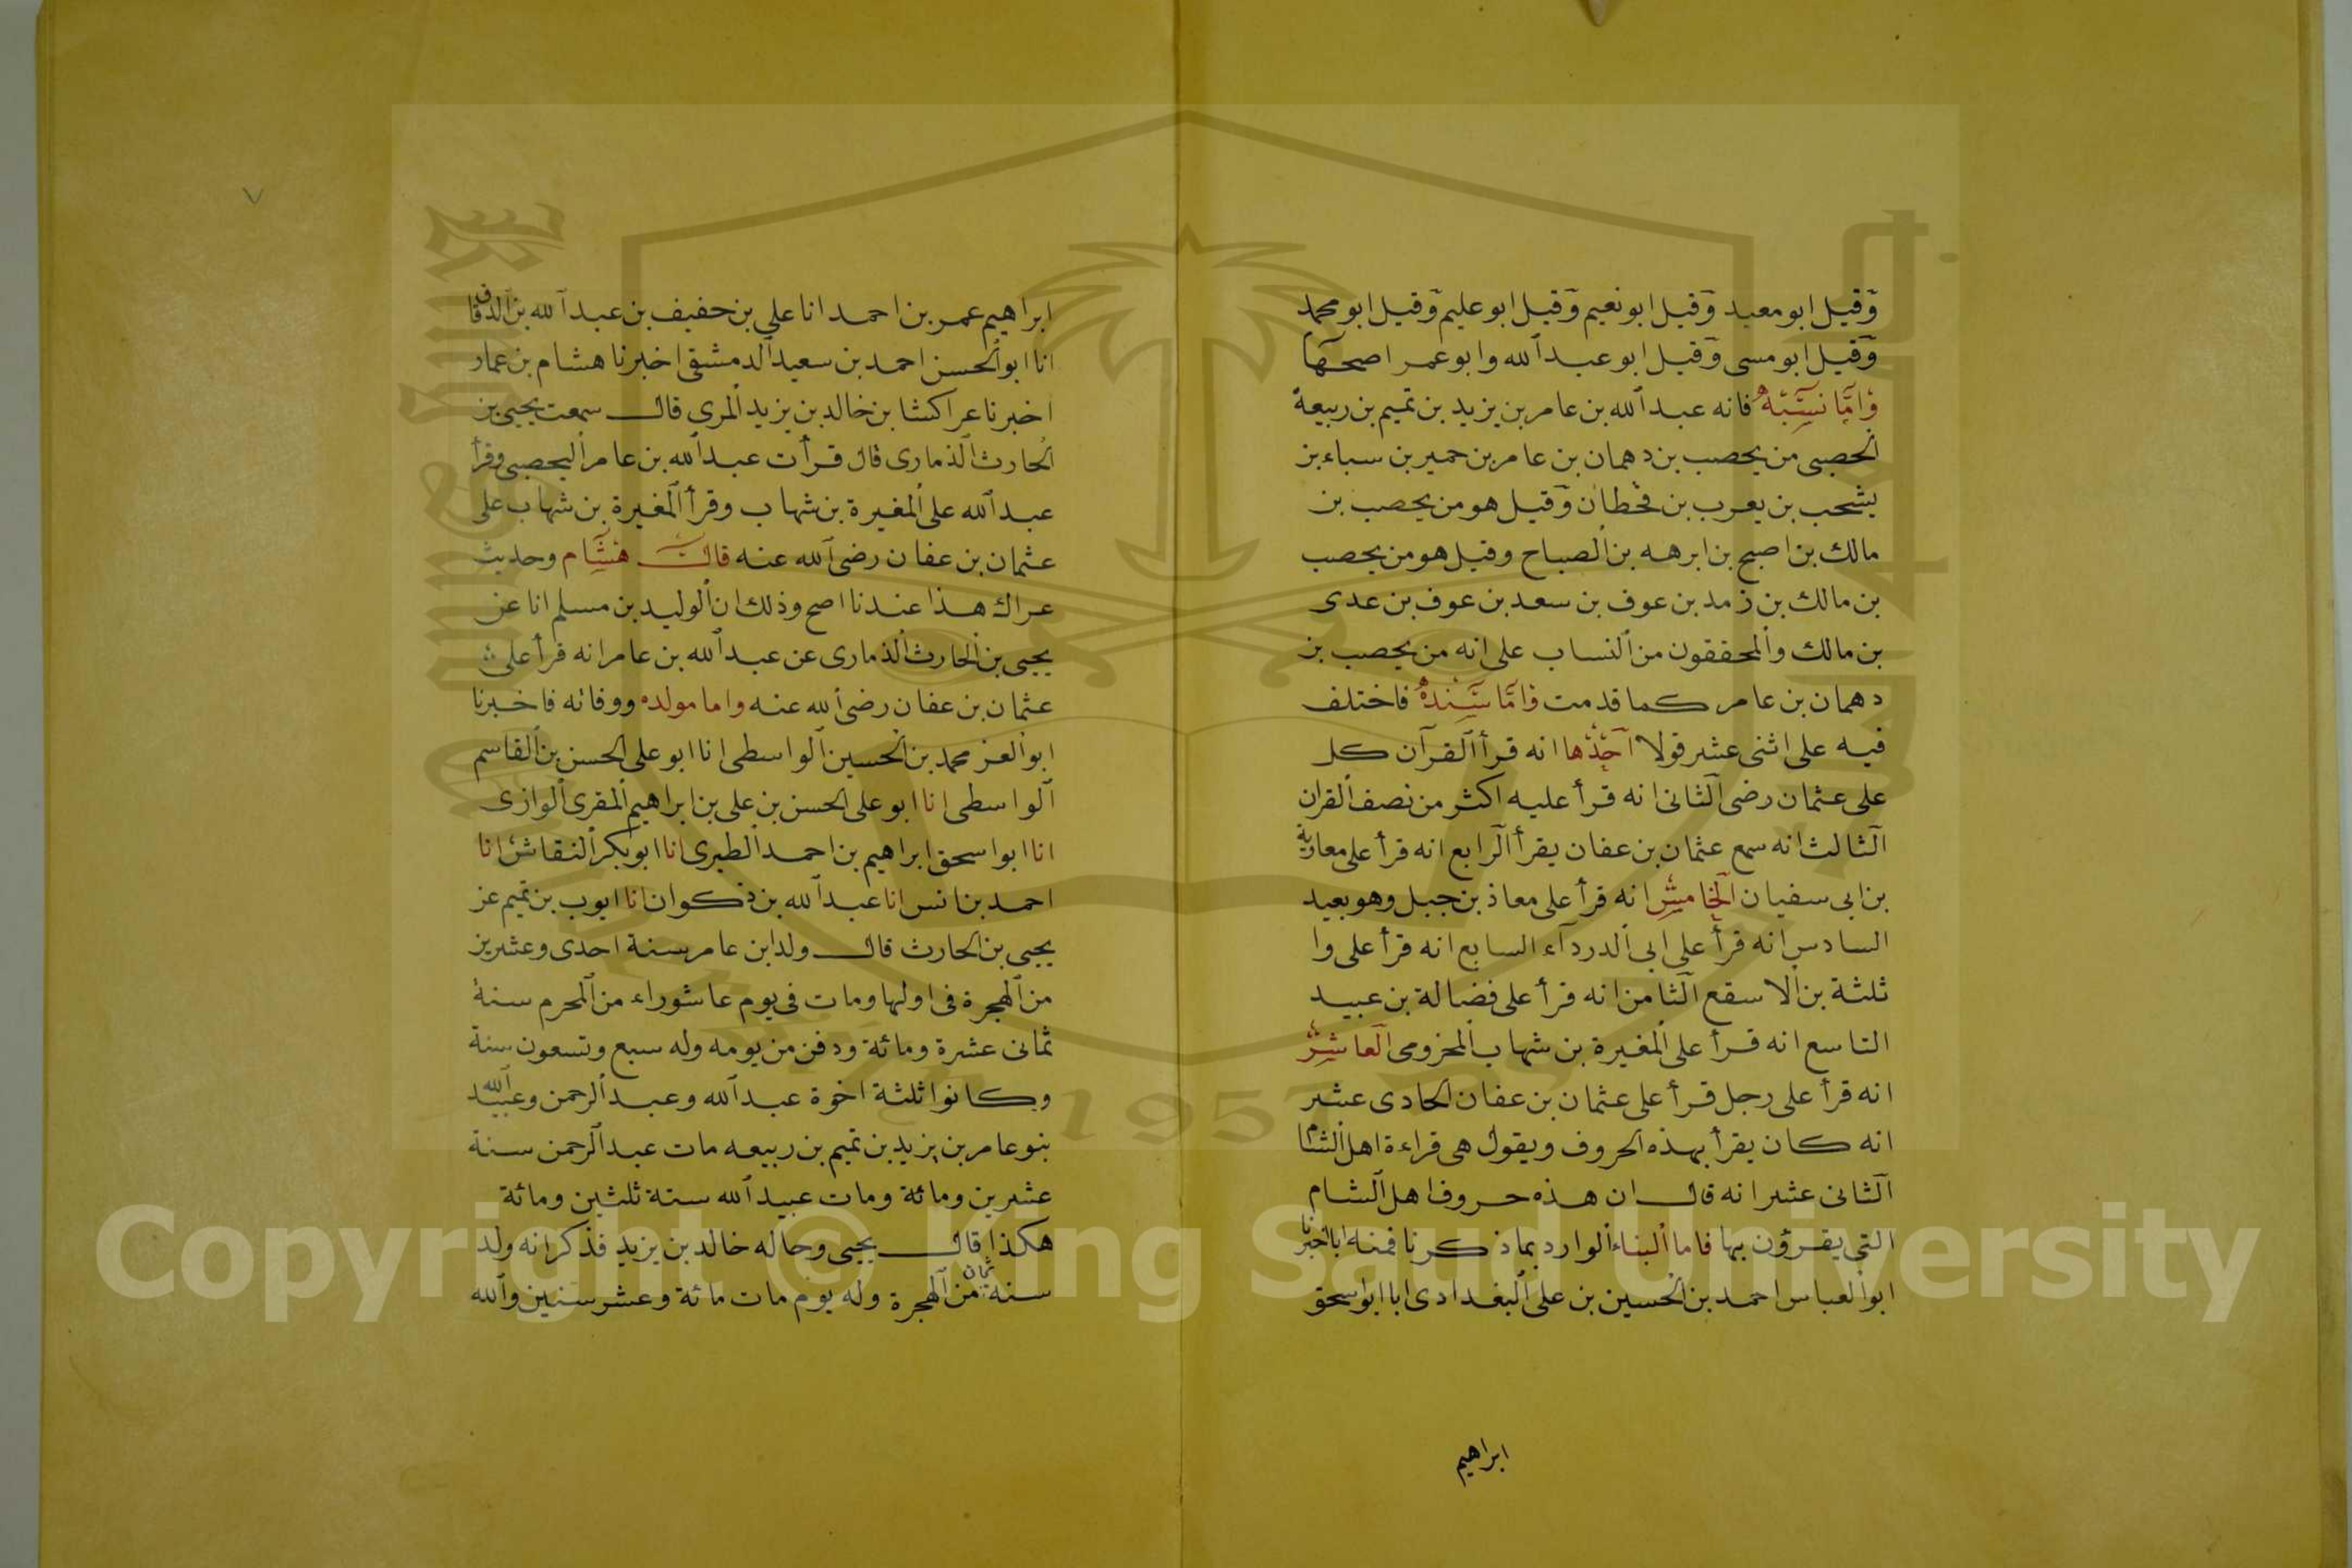 وقيل ابو معبد وقيل ابو نعيم وقيل ابو عليم وقيل ابو محمد
وقيل ابو مسى وقيل ابو عبد الله وابو عمر اصحها
واما نسبه فانه عبد الله بن عامر بن يزيد بن تميم بن ربيعة
الحصبى من يحصب بن دهمان بن عامر بن حمير بن سباء بن
يشحب بن يعرب بن قحطان وقيل هو من يحصب بن
مالك بن اصبح بن ابرهه بن الصباح وقيل هو من يحصب
بن مالك بن زمد بن عوف بن سعد بن عوف بن عدى
بن مالك والمحققون من النساب على انه من يحصب بن
دهمان بن عامر كما قدمت واما سنده فاختلف
فيه على اثنى عشر قولا احدها انه قرأ القرآن كل
على عثمان رضى الثانى انه قرأ عليه اكثر من نصف القران
الثالث انه سمع عثمان بن عفان يقرأ الرابع انه قرأ على معاوية
بن ابى سفيان الخامس انه قرأ على معاذ بن جبل وهو بعيد
السادس انه قرأ على ابى الدردآء السابع انه قرأ على وا
ثلثة بن الاسقع الثامن انه قرأ على فضالة بن عبيد
التاسع انه قرأ على المغيرة بن شهاب المخزومى العاشر
انه قرأ على رجل قرأ على عثمان بن عفان الحادى عشر
انه كان يقرأ بهذه الحروف ويقول هى قراءة اهل الشام
الثانى عشر انه قال ان هذه حروف اهل الشام
التى يقرؤن بها فاما البناء الوارد بما ذكرنا فمنه ابا اخبرنا
ابو العباس احمد بن الحسين بن على البغدادى ابا ابو اسحق
ابراهيم
ابراهيم عمر بن احمد انا على بن حفيف بن عبد الله بن الدقاق
انا ابو الحسن احمد بن سعيد الدمشقى اخبرنا هشام بن عمار
اخبرنا عراكشا بن خالد بن يزيد المرى قال سمعت يحيى بن
الحارث الذمارى قال قرأت عبد الله بن عامر اليحصبى وقرأ
عبد الله على المغيرة بن شهاب وقرأ المغيرة بن شهاب على
عثمان بن عفان رضى الله عنه قال هشام وحديث
عراك هذا عندنا اصح وذلك ان الوليد بن مسلم انا عن
يحيى بن الحارث الذمارى عن عبد الله بن عامر انه قرأ على
عثمان بن عفان رضى الله عنه واما مولده ووفاته فاخبرنا
ابو العز محمد بن الحسين الواسطى انا ابو على الحسن بن القاسم
الواسطى انا ابو على الحسن بن على بن ابراهيم المقرى الوازى
انا ابو اسحق ابراهيم بن احمد الطيرى انا ابو بكر النقاش انا
احمد بن انس انا عبد الله بن ذكوان انا ايوب بن تميم عن
يحيى بن الحارث قال ولد ابن عامر سنة احدى وعشرين
من الهجرة فى اولها ومات فى يوم عاشوراء من المحرم سنة
ثمانى عشرة ومائة ودفن من يومه وله سبع وتسعون سنة
وكانوا ثلثة اخوة عبد الله وعبد الرحمن وعبيد الله
بنو عامر بن يزيد بن تميم بن ربيعه مات عبد الرحمن سنة
عشرين ومائة ومات عبيد الله سنة ثلثين ومائة
هكذا قال يحيى وحاله خالد بن يزيد فذكر انه ولد
سنة ثمان من الهجرة وله يوم مات مائة وعشر سنين والله
Copyright © King Saud University
1957